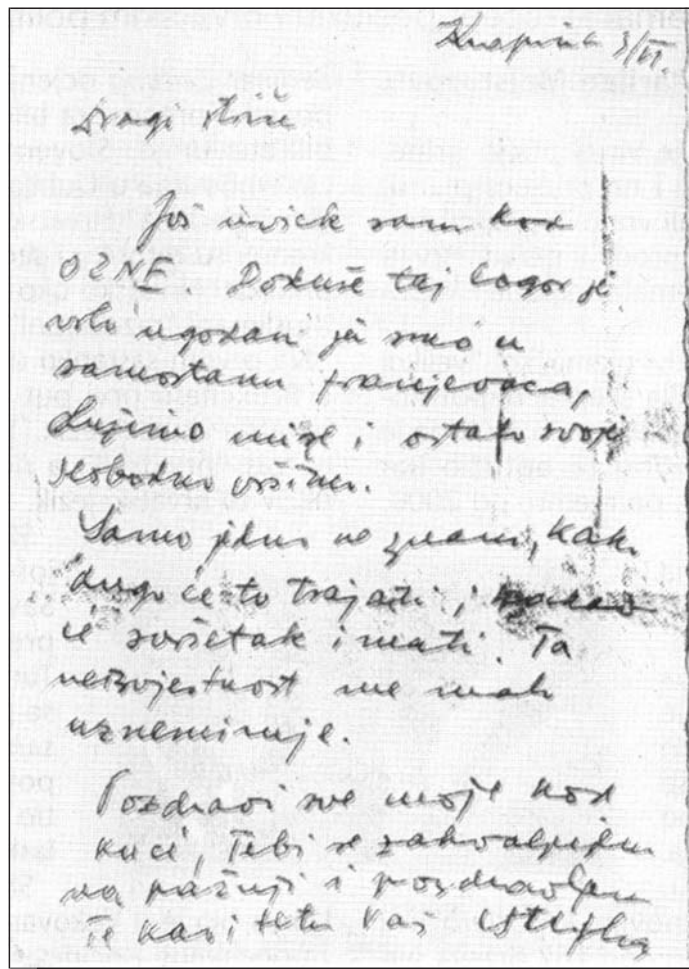 Krapina 3/VI
Dragi striče
Još uviek sam kod
OZNE. Doduše taj logor je
vrlo ugodan jer smo u
samostanu franjevaca,
služimo mise i ostalo svoje
slobodno vršimo.
Samo jedno ne znam, kako
dugo će to trajati, i kakav
će svršetak imati. Ta
neizvjestnost me malo
uznemiruje.
Pozdravi sve moje kod
kuće, Tebi se zahvaljujem
na pažnji i pozdravljam
te kao i tetu Vaš